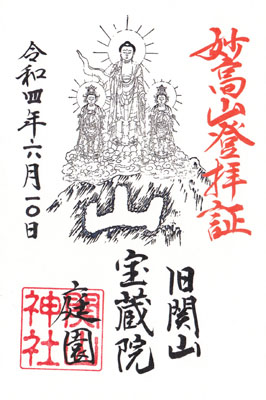 妙高山登拝証
山
旧関山
宝蔵院
庭園
関山神社
令和四年六月一〇日